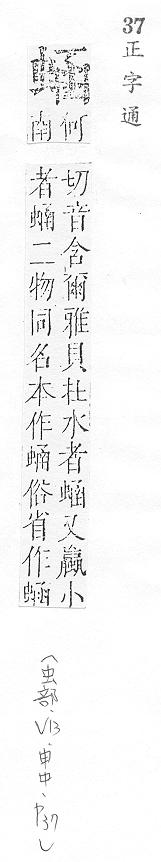 37正字通
何南
切音含爾雅貝在水者蜬又蠃小
者蜬二物同名本作蜬俗省作蜬
(虫部、V13、申中、P37)